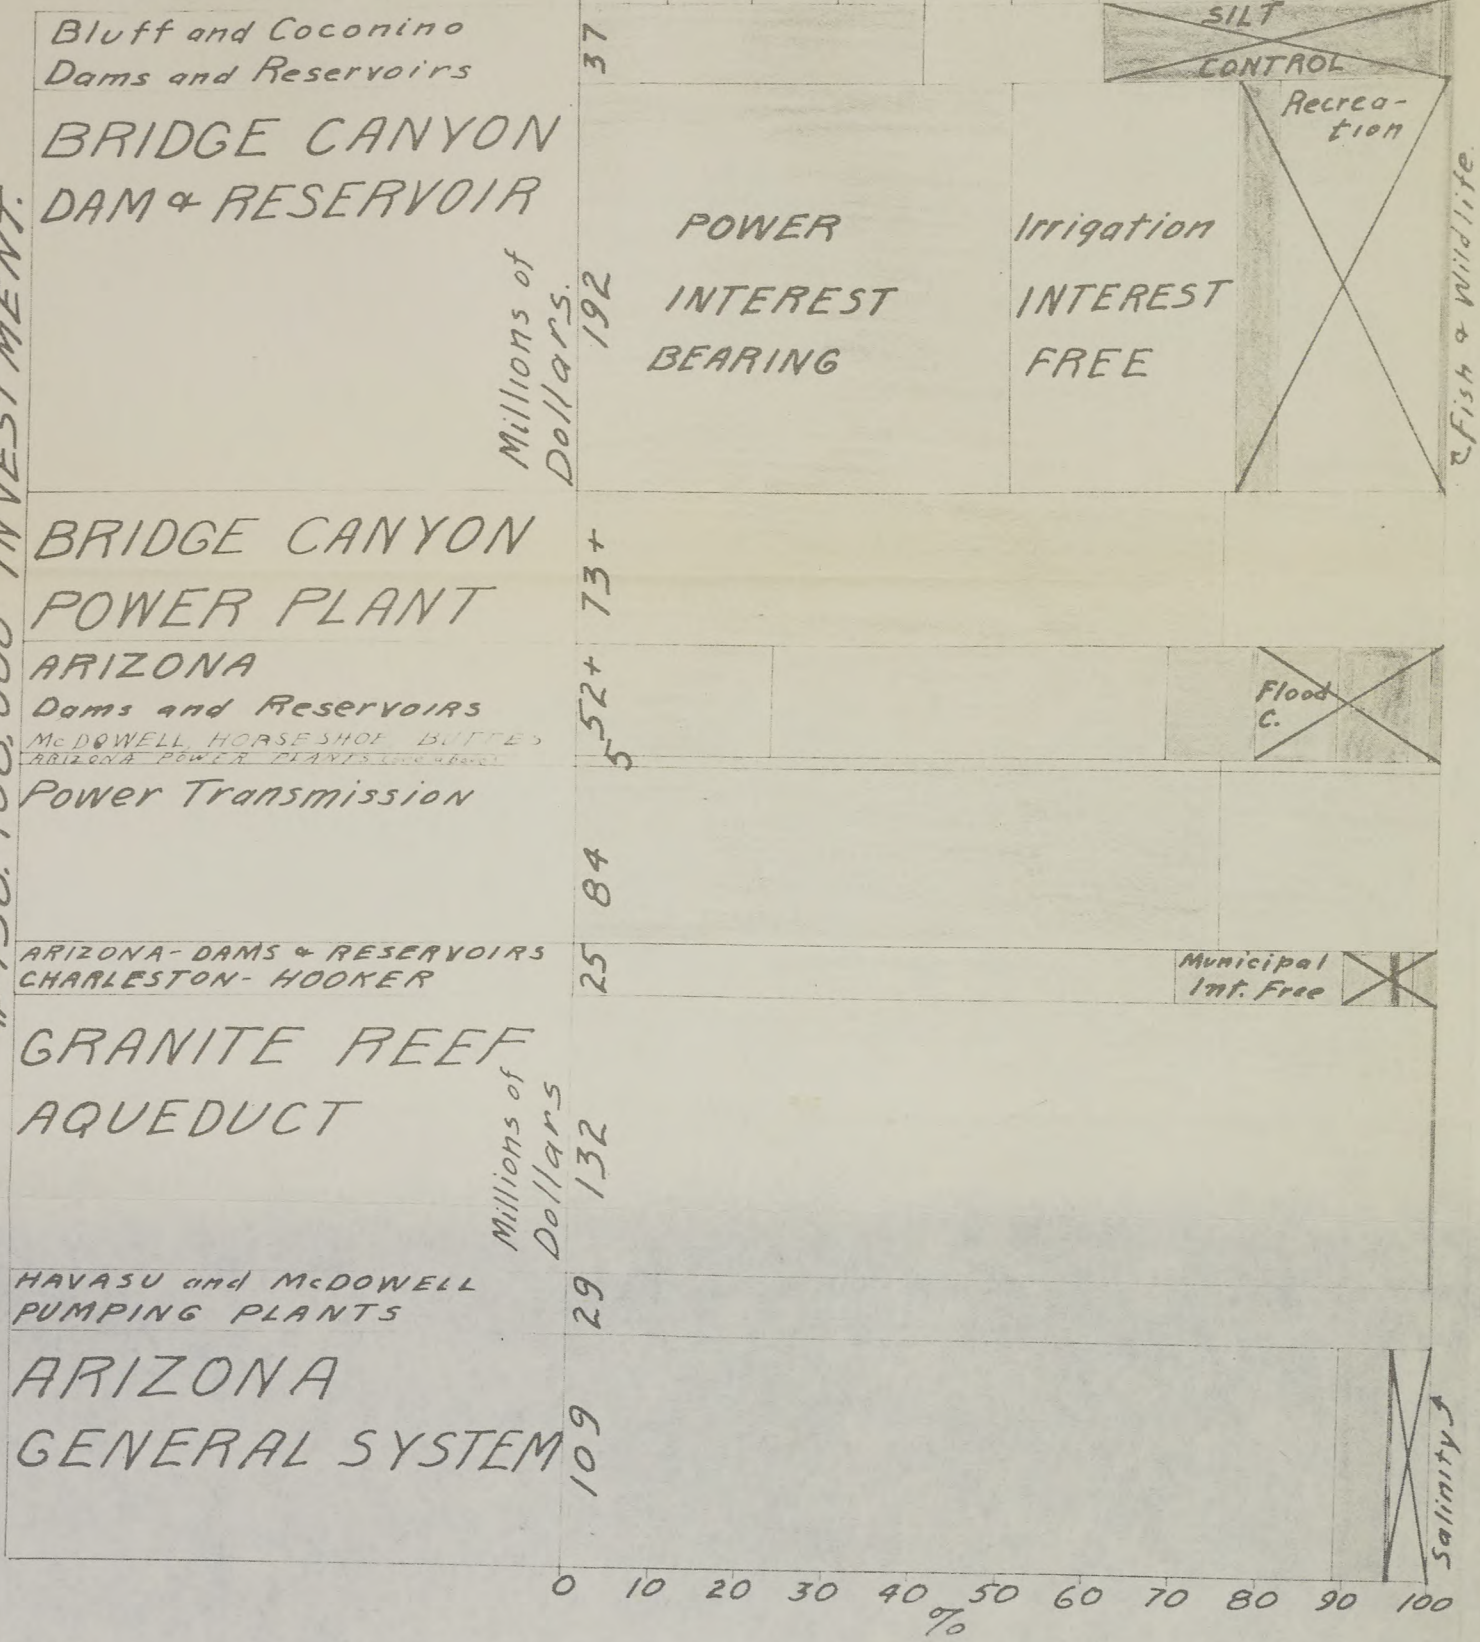 Bluff and Coconino
Dams and Reservoirs
37
SILT
CONTROL
BRIDGE CANYON
DAM & RESERVOIR
Millions of
Dollars.
192
POWER
INTEREST
BEARING
Irrigation
INTEREST
FREE
Recrea-
tion
Fish & Wildlife
INVESTMENT.
BRIDGE CANYON
POWER PLANT
73+
ARIZONA
Dams and Reservoirs
McDOWELL, HORSESHOE BUTTES
52+
ARIZONA POWER PLANTS
5
Flood
C.
Power Transmission
84
ARIZONA-DAMS & RESERVOIRS
CHARLESTON-HOOKER
25
Municipal
Int. Free
GRANITE REEF
AQUEDUCT
Millions of
Dollars
132
HAVASU and McDOWELL
PUMPING PLANTS
29
ARIZONA
GENERAL SYSTEM
109
Salinity
0 10 20 30 40 50 60 70 80 90 100
%